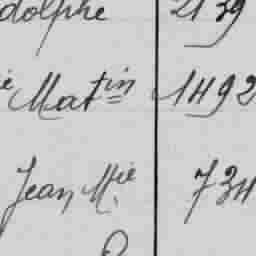 dolphe 2139
ie Matin 1492
Jean Mie 734